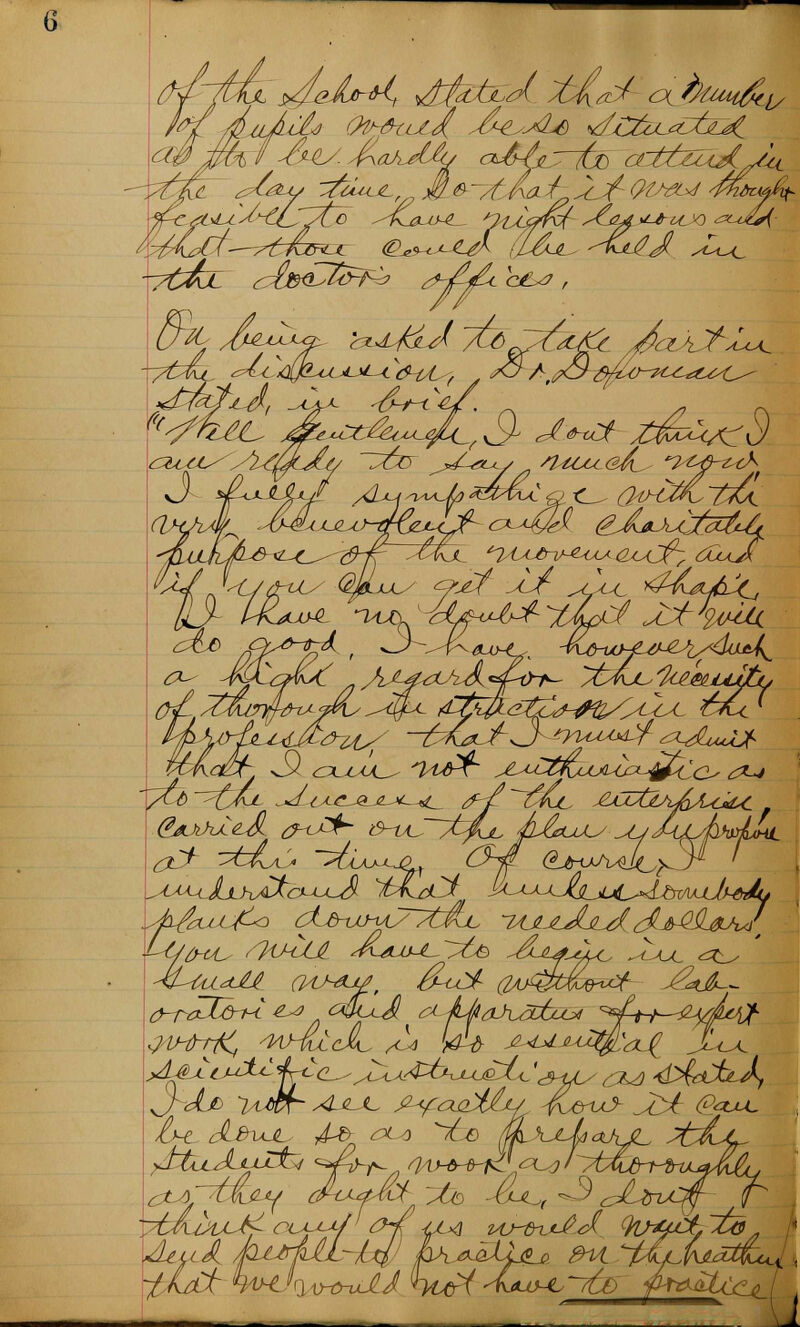 6
of the School, Stated that a Number
of pupils would be so situated
as to be hardly able to attend in
the day time, So that it was thought
feasible to have night lessons and
that those could be held in
the doctor's offices,
On being asked to take part in
the discussion, Dr. Dowman
Stated, in brief.
"Well gentlemen, I dont think I
am ready to say much now.
I fully sympathize with the
very benevolent and charitable
purpose of the movement, and
if you can get it in shape,
I have no doubt that it will
do good, I have however such
a high regard for the necessity
of thorough in struction in the
profession, that I must admit
that I am not enthusiastic as
to the success of the enterprise,
Carried out on the plan you propose
at this time, Of course, I
understand that unless somebody
planks down the needed dollars,
you will have to begin in a
small way, but without lab-
oratories and apparatus for expert
work, which is so essential in
scientific instruction as stated,
I do not see exactly how it can
be done so as to prepare the
students for work as thoroughly
as they ought to be, I don't
think any of us would want to
send people to practice on the heathen
that we would not have to practice